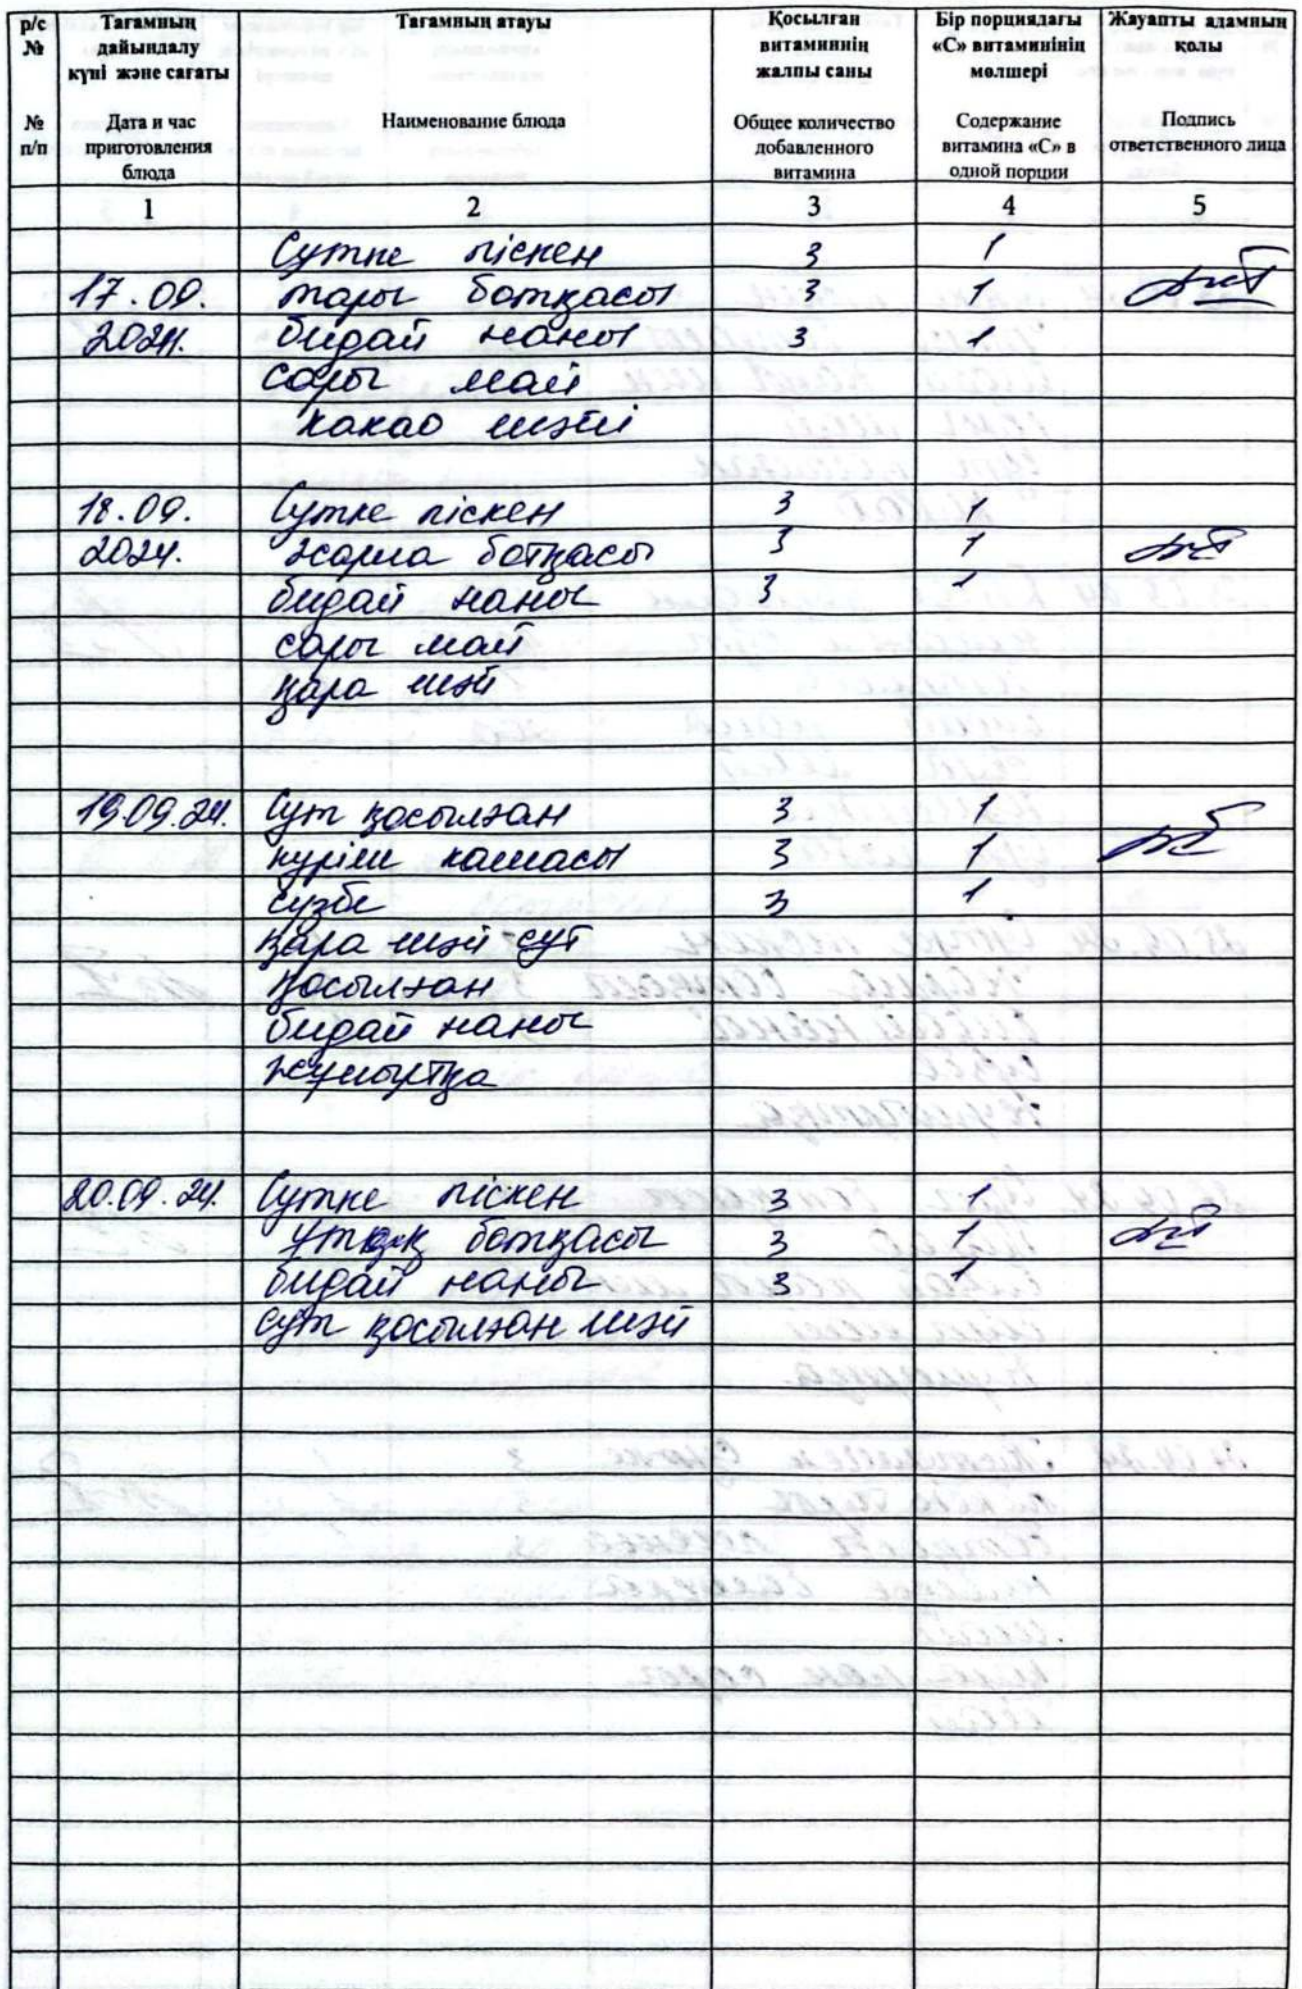 р/с № Тағамның дайындалу күні және сағаты Тағамның атауы Қосылған витаминнің жалпы саны Бір порциядағы «С» витаминінің мөлшері Жауапты адамның қолы
№ п/п Дата и час приготовления блюда Наименование блюда Общее количество добавленного витамина Содержание витамина «С» в одной порции Подпись ответственного лица
1 2 3 4 5
Сүтке піскен 3 1
17.09. тары ботқасы 3 1
2024. бидай наны 3 1
сары май
какао шәйі
18.09. Сүтке піскен 3 1
2024. жарма ботқасы 3 1
бидай наны 3 1
сары май
қара шәй
19.09.24. Сүт қосылған 3 1
күріш кашасы 3 1
сүзбе 3 1
қара шәй сүт
қосылған
бидай наны
жұмыртқа
20.09.24. Сүтке піскен 3 1
ботқасы 3 1
бидай наны 3 1
сүт қосылған шәй